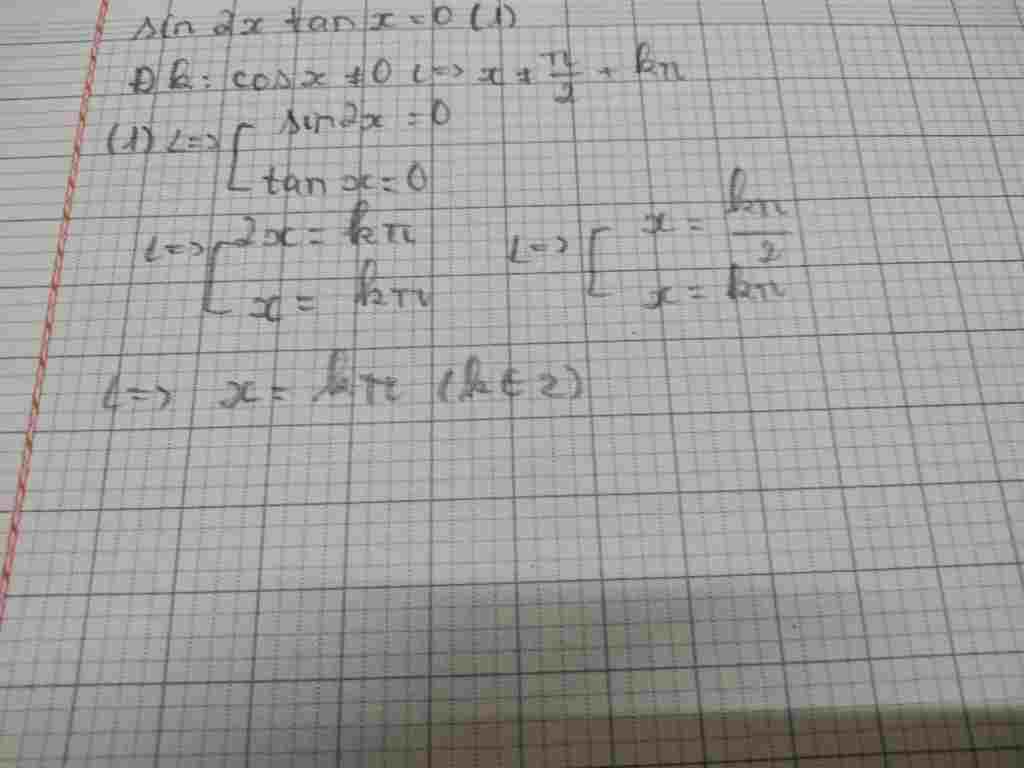 sin 2x tan x = 0 (1)
Đk: cos x ≠ 0 <=> x ≠ π/2 + kπ
(1) <=> [ sin 2x = 0
tan x = 0
<=> [ 2x = kπ <=> [ x = kπ/2
x = kπ x = kπ
<=> x = kπ (k ∈ Z)